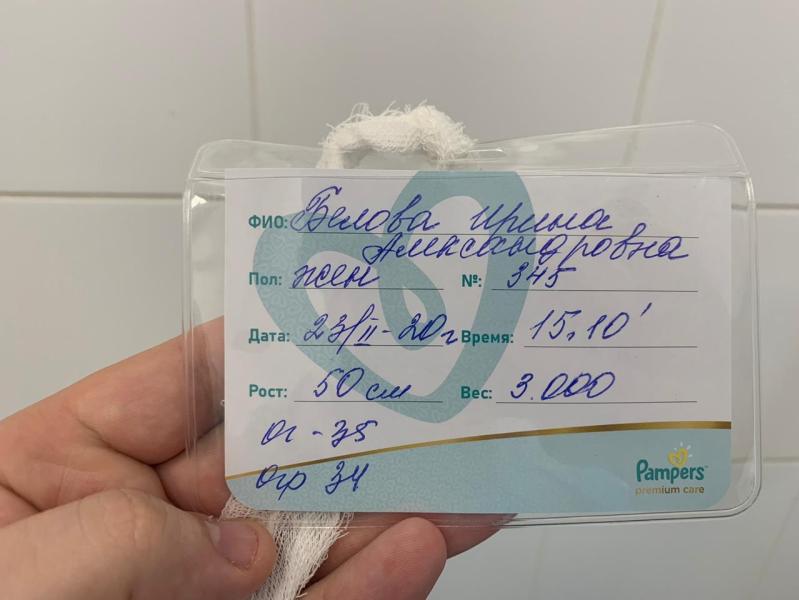 ФИО: Белова Ирина
Александровна
Пол: жен №: 345
Дата: 23/II-20г Время: 15.10'
Рост: 50 см Вес: 3.000
ог - 35
огр 34
Pampers
premium care